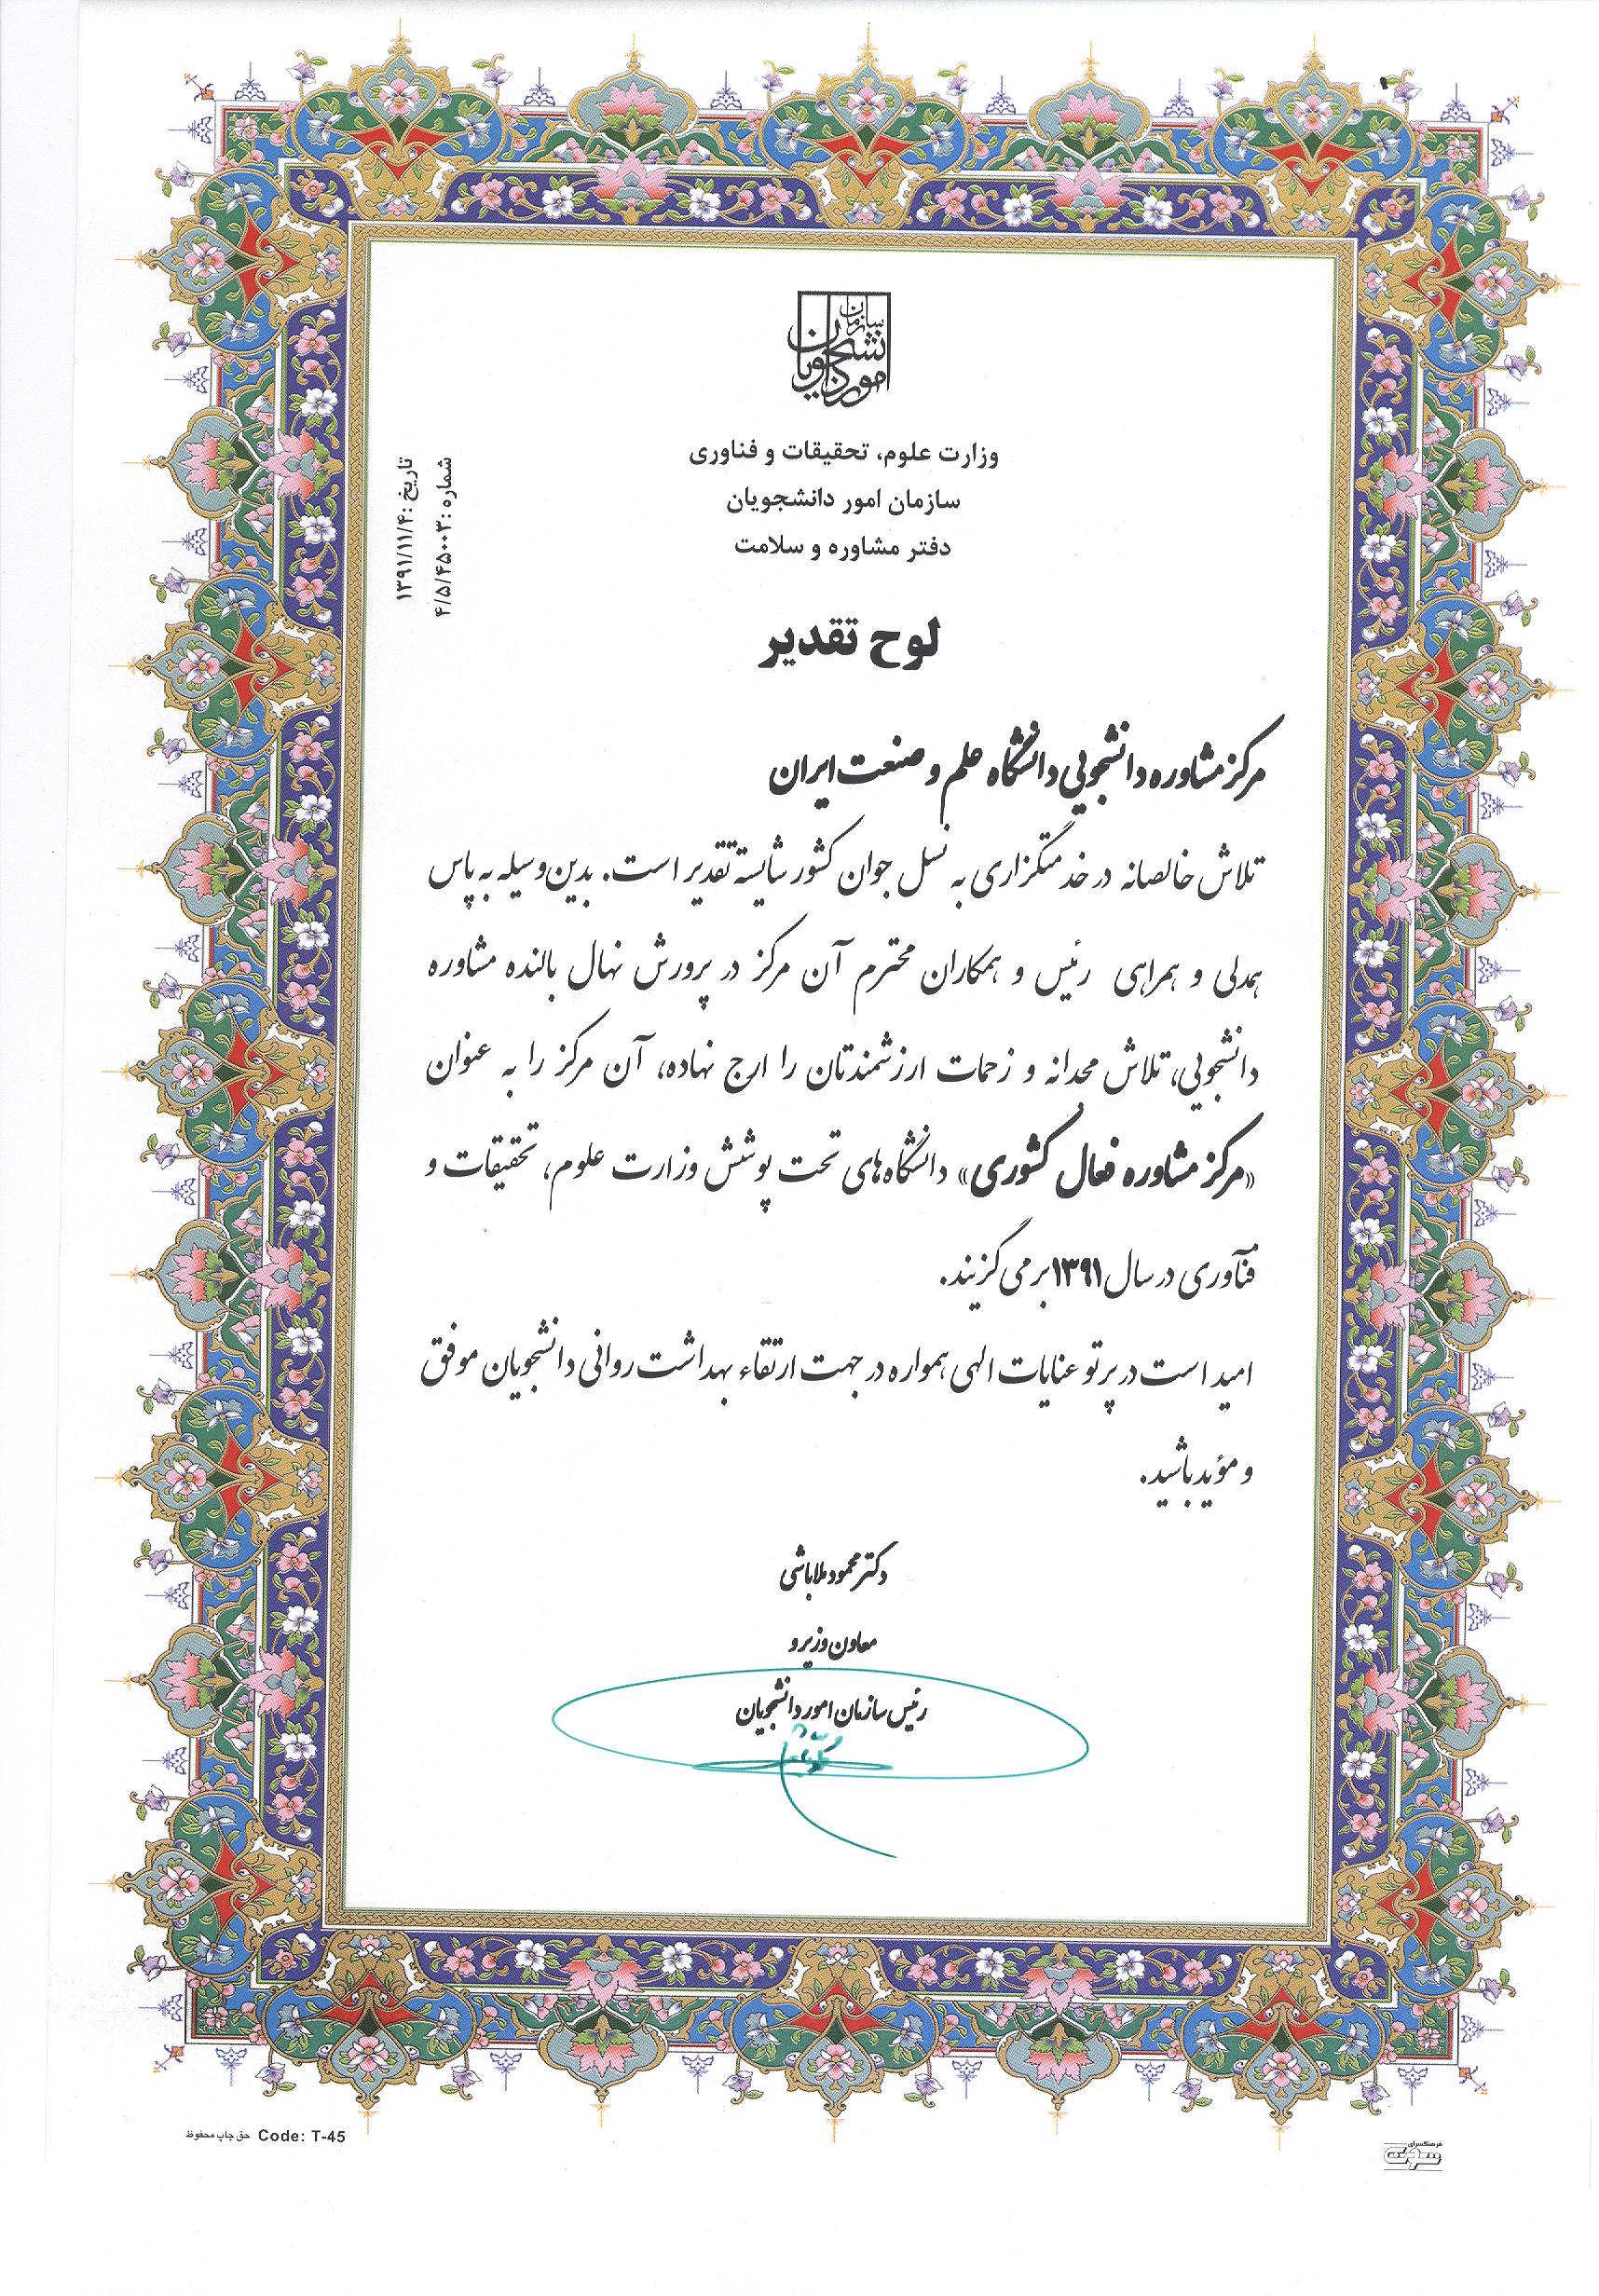 سازمان
امور دانشجویان
وزارت علوم، تحقیقات و فناوری
سازمان امور دانشجویان
دفتر مشاوره و سلامت
شماره :۴/۵/۴۵۰۰۳
تاریخ :۱۳۹۱/۱۱/۴
لوح تقدیر
مرکز مشاوره دانشجویی دانشگاه علم و صنعت ایران
تلاش خالصانه در خدمتگزاری به نسل جوان کشور شایسته تقدیر است. بدین وسیله به پاس
همدلی و همراهی رئیس و همکاران محترم آن مرکز در پرورش نهال بالنده مشاوره
دانشجویی، تلاش مجدانه و زحمات ارزشمندتان را ارج نهاده، آن مرکز را به عنوان
«مرکز مشاوره فعال کشوری» دانشگاه‌های تحت پوشش وزارت علوم، تحقیقات و
فنآوری در سال ۱۳۹۱ بر می گزیند.
امید است در پرتو عنایات الهی همواره در جهت ارتقاء بهداشت روانی دانشجویان موفق
و مؤید باشید.
دکتر محمود ملاباشی
معاون وزیر و
رئیس سازمان امور دانشجویان
حق چاپ محفوظ Code: T-45
فرهنگسرای